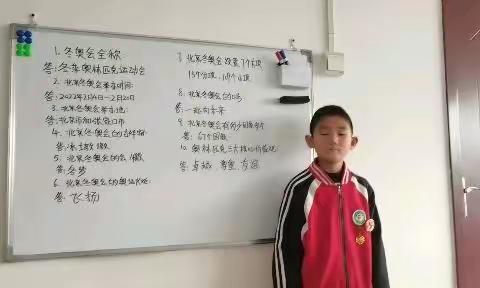 1. 冬奥会全称
答:冬季奥林匹克运动会
2. 北京冬奥会举办时间:
答:2022年2月4日—2月20日
3. 北京冬奥会举办地:
答:北京市和张家口市
4. 北京冬奥会的吉祥物:
答:冰墩墩
5. 北京冬奥会的会徽:
答:冬梦
6. 北京冬奥会的奥运火炬:
答:飞扬
7. 北京冬奥会设置7个大项
15个分项,109个小项
8. 北京冬奥会的口号:
答:一起向未来
9. 北京冬奥会有多少国家参
答:
10. 奥林匹克三大核心价值观:
答:卓越、尊重、友谊